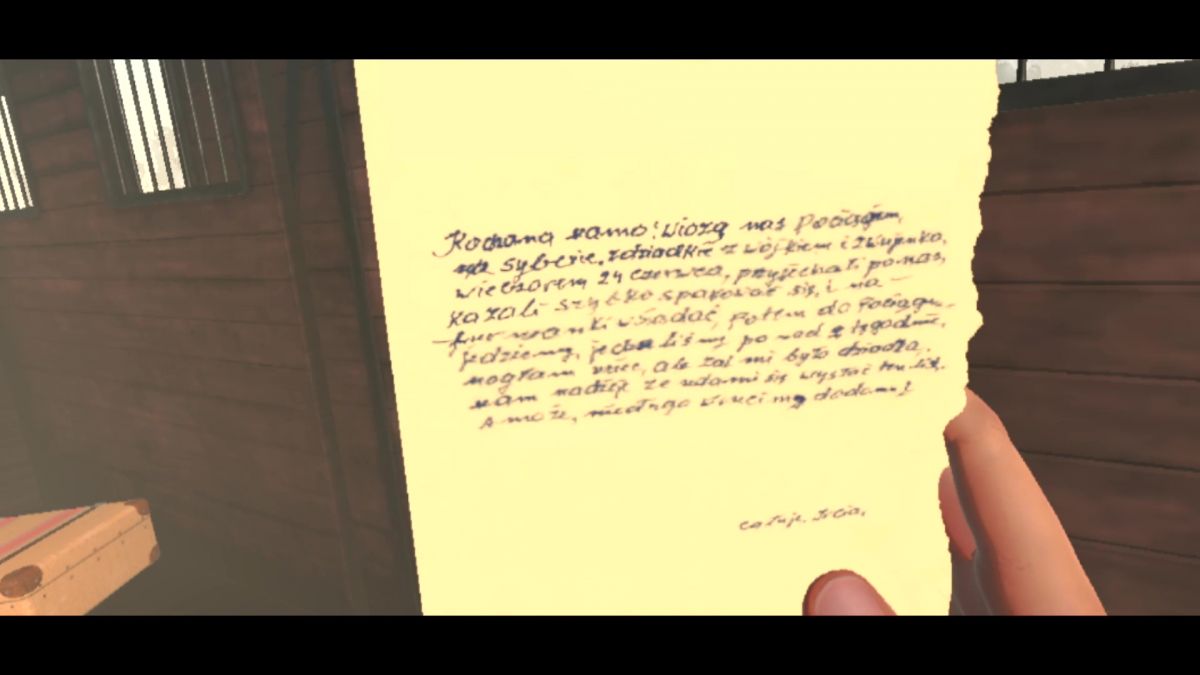 Kochana Mamo! Wiozą nas Pociągiem,
na Syberię, z dziadkiem z wójkiem i z
wieczorem 24 czerwca, przyjechali po nas,
kazali szybko spakować się, i na
furmanki wsadać, potem do Pociągu.
jedziemy, jechaliśmy ponad 2 tygodnie,
mogłam uciec, ale żal mi było dziadka.
mam nadzieję ze uda mi się wysłać ten list.
A może, niedługo wrócimy do domu!
całuję. Ircia,